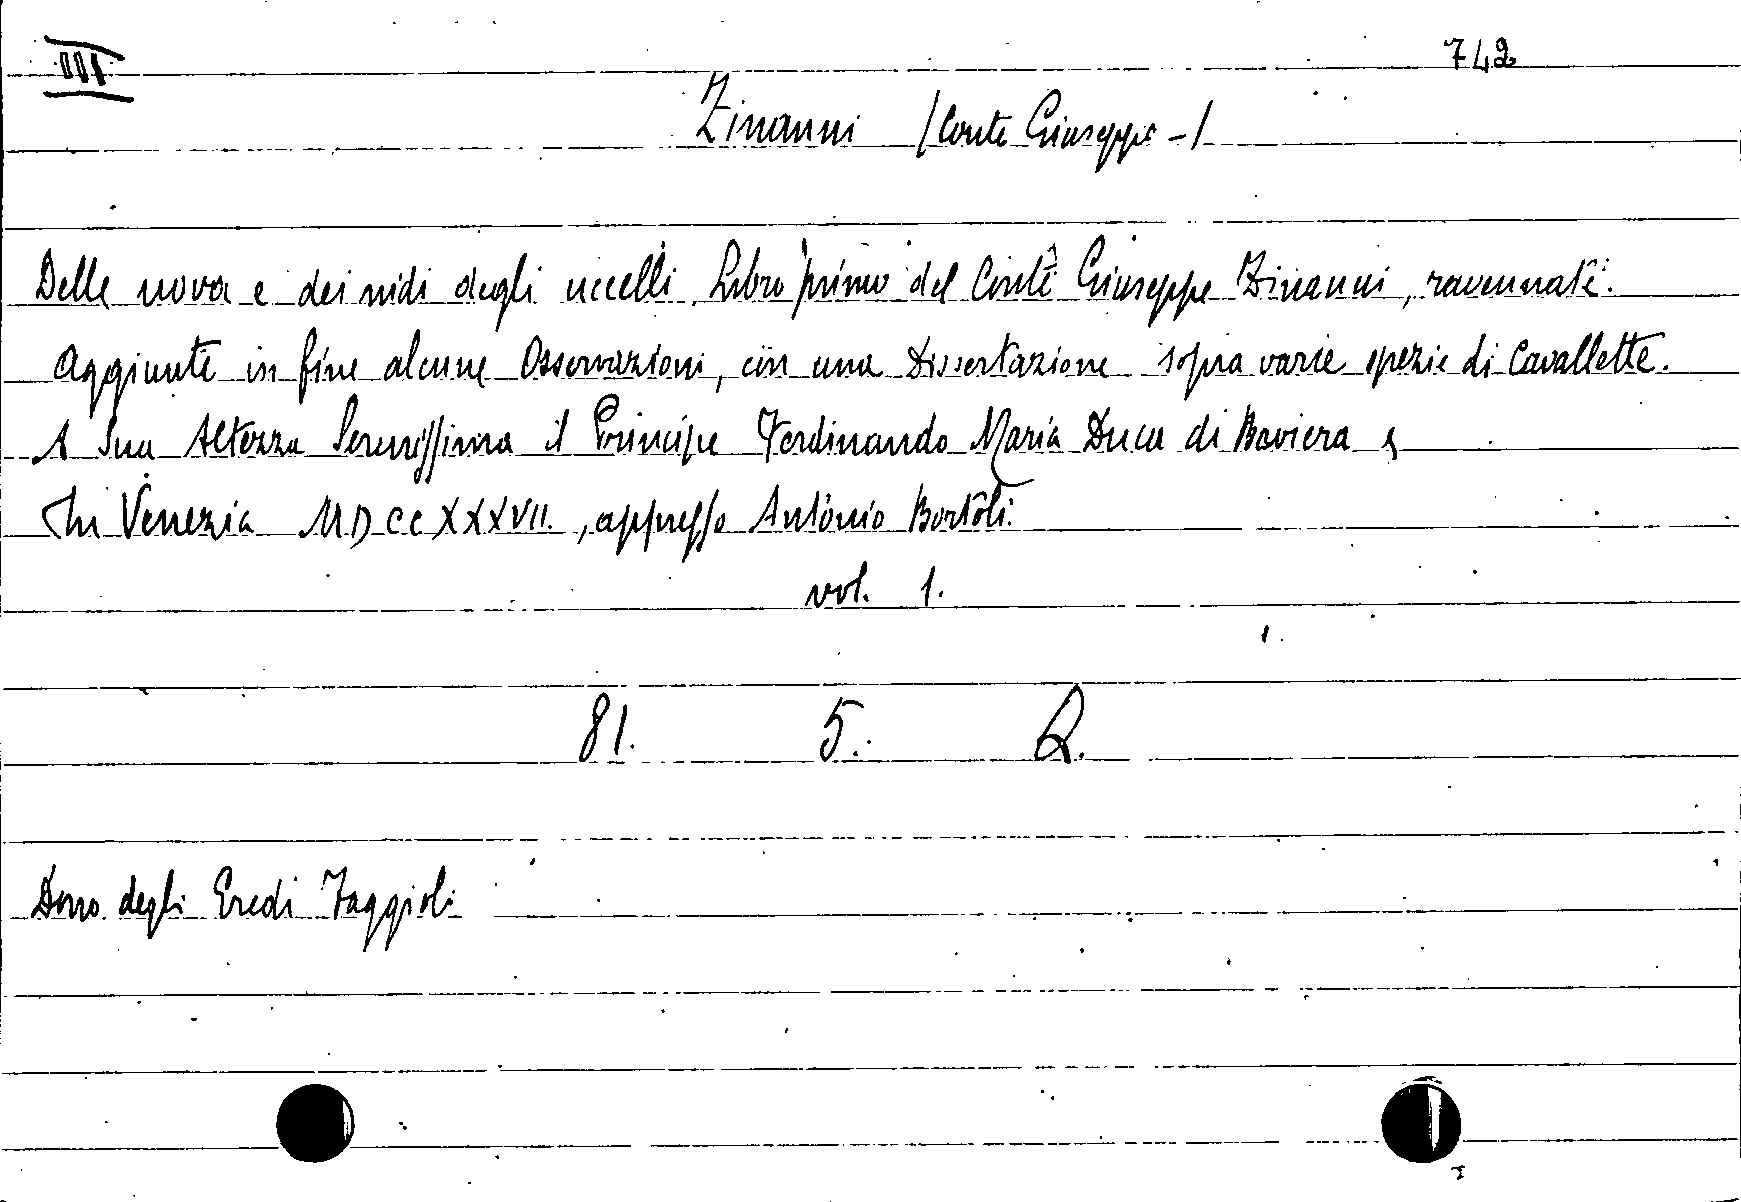 III
742
Zinanni (Conte Giuseppe -)
Delle uova e dei nidi degli uccelli. Libro primo del Conte Giuseppe Zinanni, ravennate.
Aggiunte in fine alcune Osservazioni, con una Dissertazione sopra varie spezie di Cavallette.
A Sua Altezza Serenissima il Principe Ferdinando Maria Duca di Baviera &
In Venezia MDCCXXXVII., appresso Antonio Bortoli.
vol. 1.
81. 5. Q.
Dono degli Eredi Faggioli